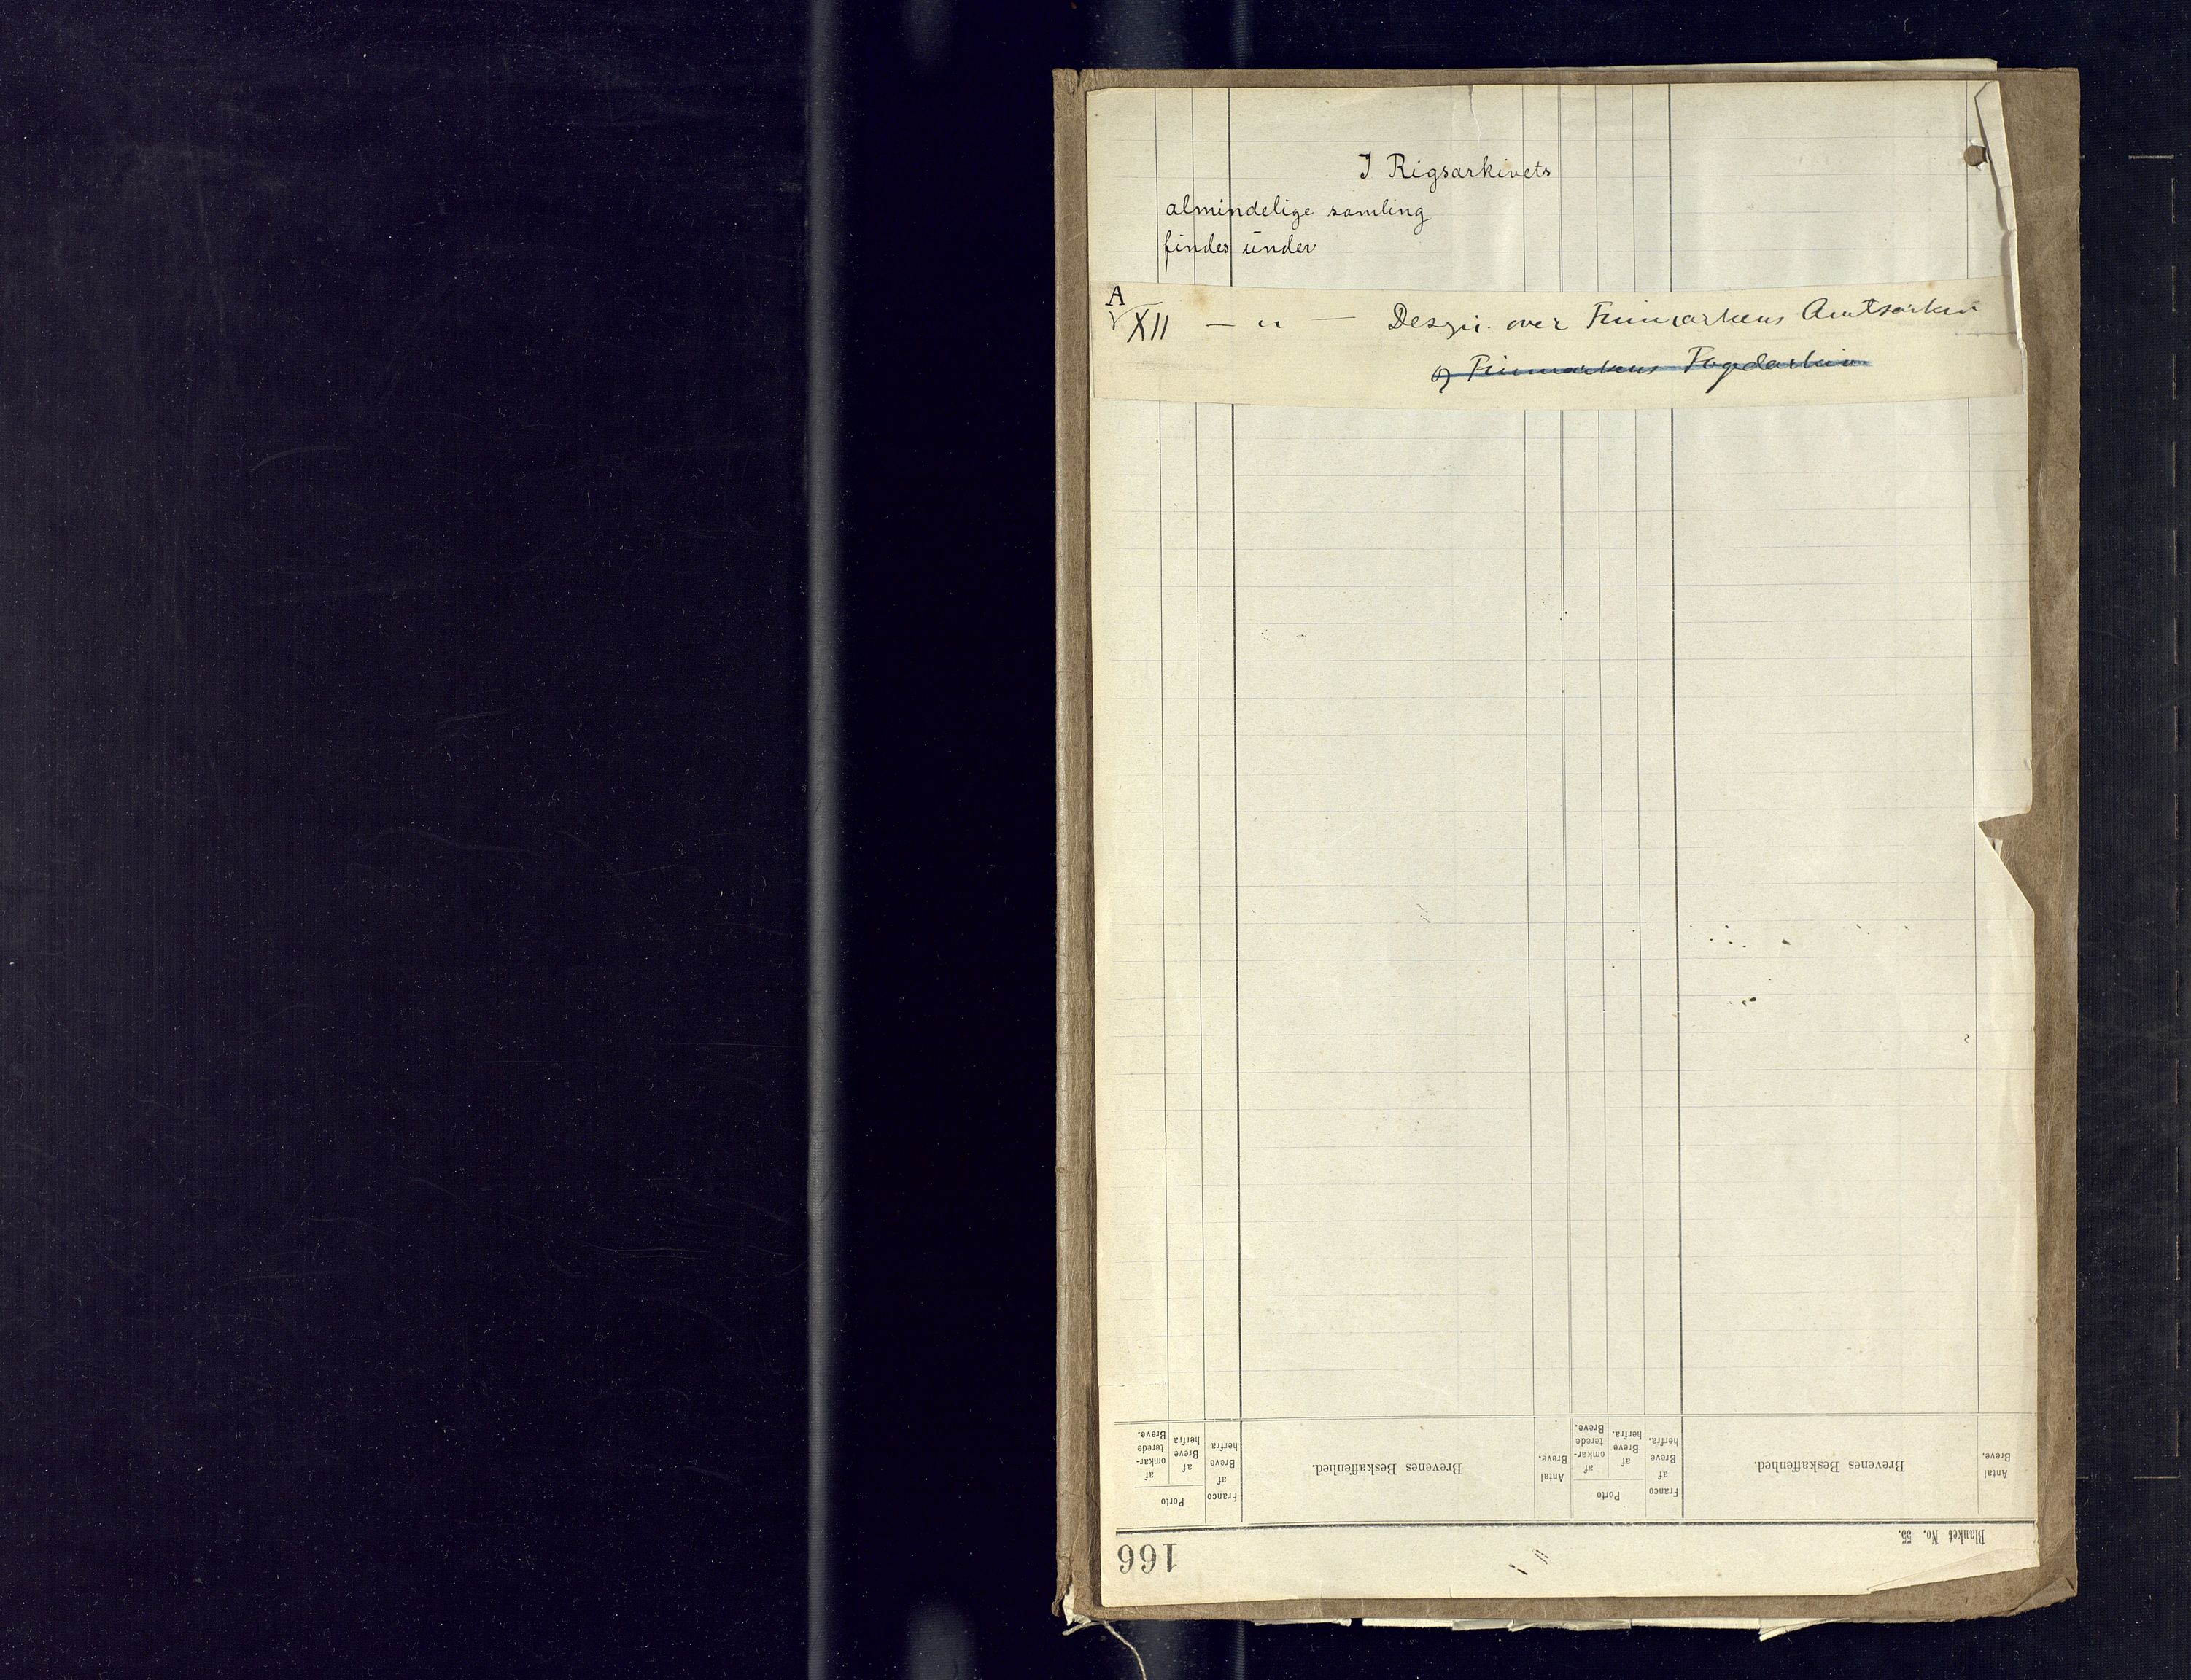 I Rigsarkivets
almindelige samling
findes under
A
XII — " — Desgn. over Finmarkens Amtsarkiv
og Finmarkens Fogdarkiv
166
Blanket No. 55.
Antal Breve.
Brevenes Beskaffenhed.
Franco af Breve herfra.
Porto
af Breve herfra.
af omkarterede Breve.
Antal Breve.
Brevenes Beskaffenhed.
Franco af Breve herfra
Porto
af Breve herfra
af omkarterede Breve.